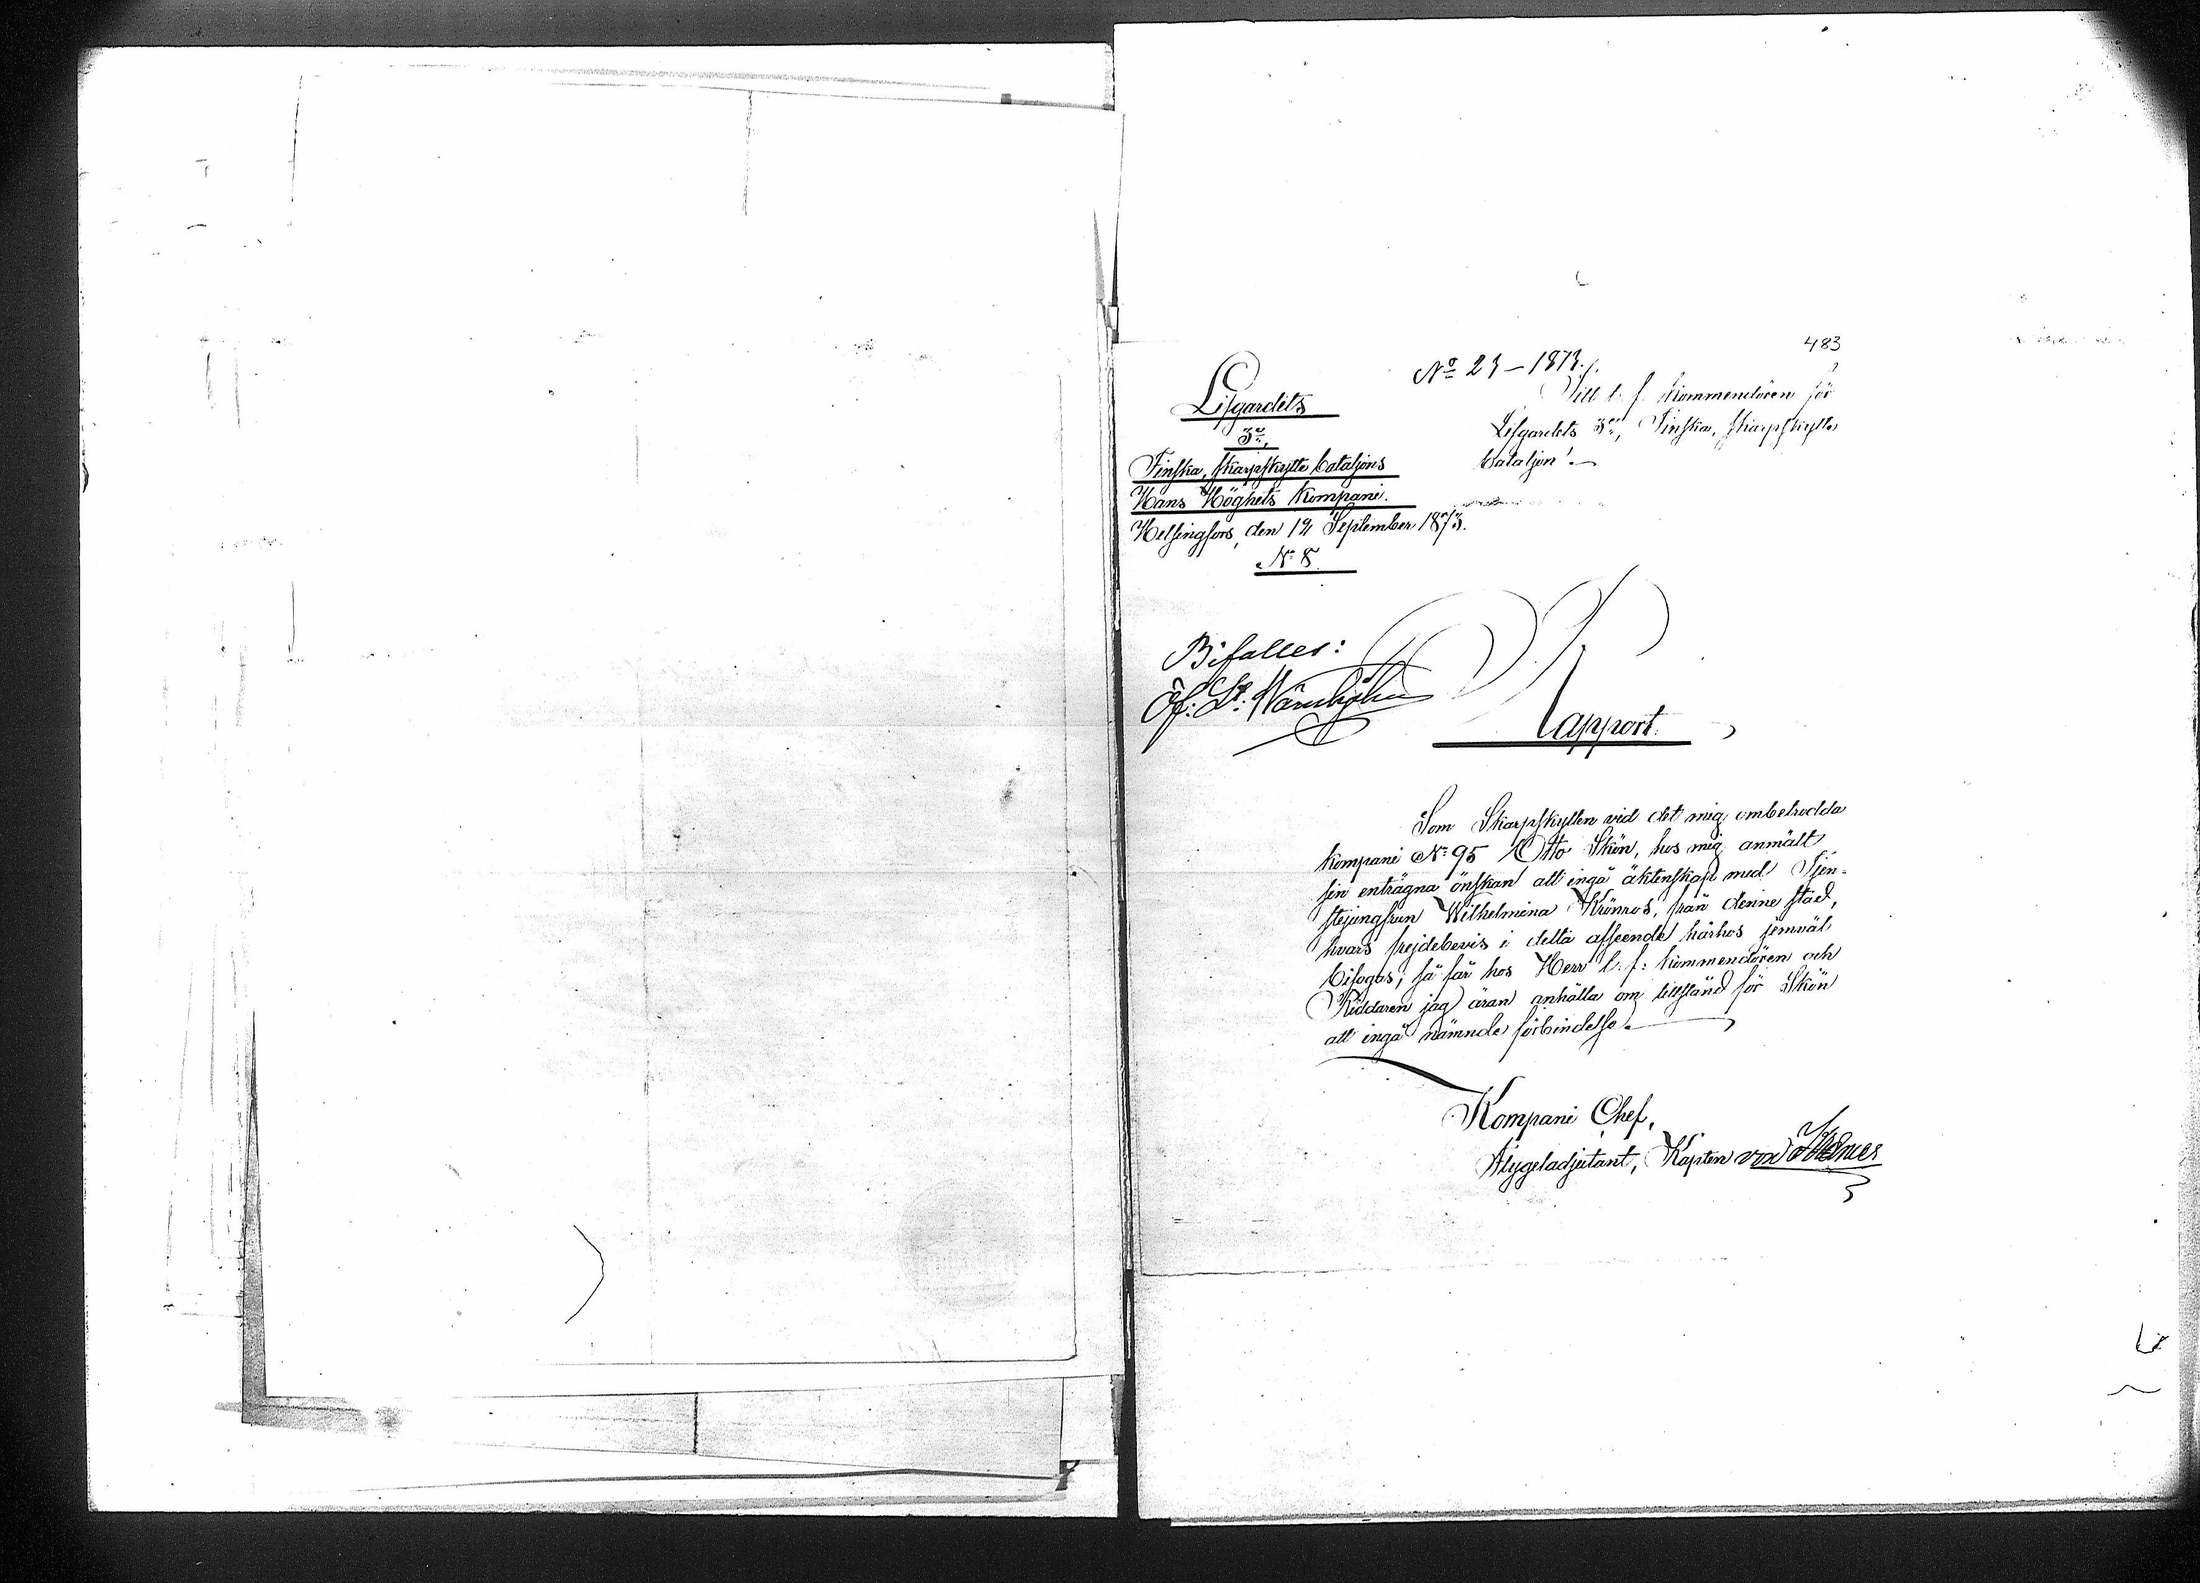 483
No 23 – 1873.
Till t. f. Kommendören för
Lifgardets 3e, Finska, skarpskytte
bataljon!
Lifgardets
3e,
Finska, skarpskytte bataljons
Hans Höghets Kompani.
Helsingfors, den 12 September 1873.
No 8.
Bifalles:
Öf: Lt:
Rapport.
Som Skarpskytten vid det mig ombetrodda
kompani No 95 Otto Skön, hos mig anmält
sin enträgna önskan att ingå äktenskap med Tjen-
stejungfrun Wilhelmina Krönros, från denne stad,
hvars frejdebevis i detta afseende härhos jemväl
bifogas; så får hos Herr t: f: kommendören och
Riddaren jag äran anhålla om tillstånd för Skön
att ingå nämnde förbindelse.
Kompani Chef,
Flygeladjutant, Kapten von